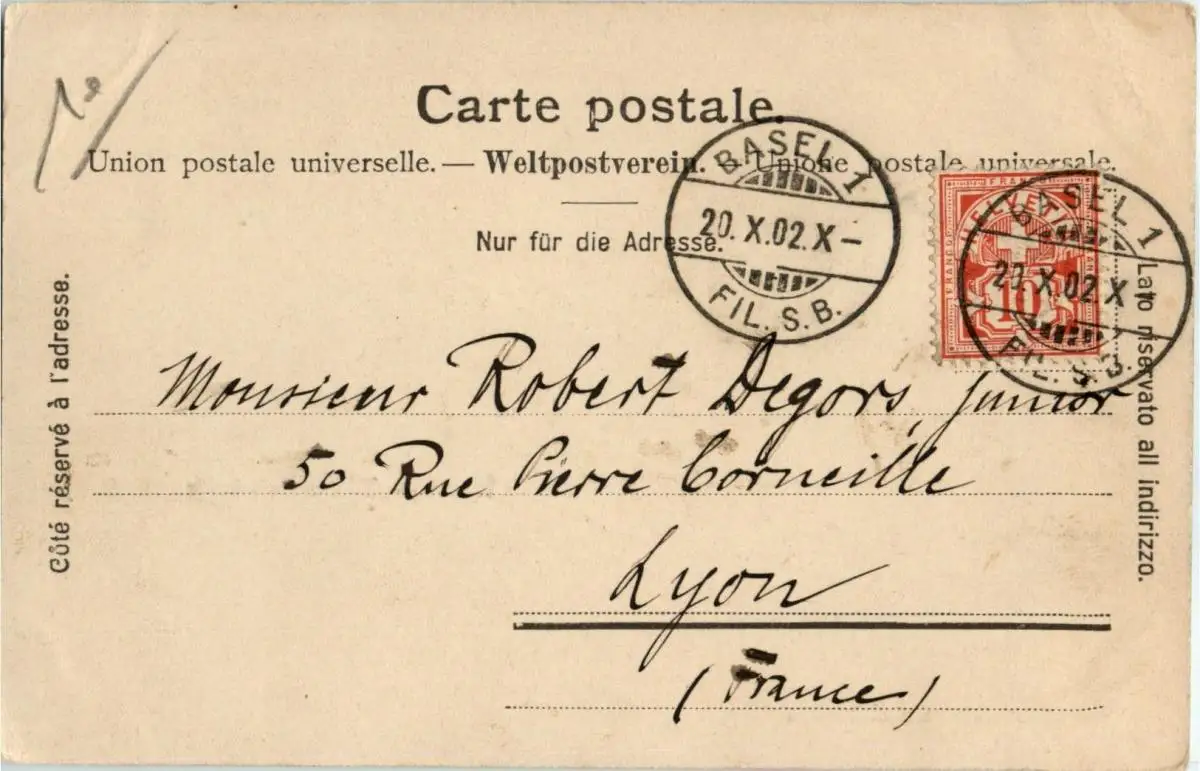 Carte postale.
Union postale universelle. — Weltpostverein. — Unione postale universale.
Nur für die Adresse.
BASEL 1
20. X.02. X —
FIL. S. B.
HELVETIA
FRANCO
10
BASEL 1
20. X.02 X
FIL. S. B.
Côté réservé à l'adresse.
Lato riservato all indirizzo.
Monsieur Robert Degors, junior
50 Rue Pierre Corneille
Lyon
(France)